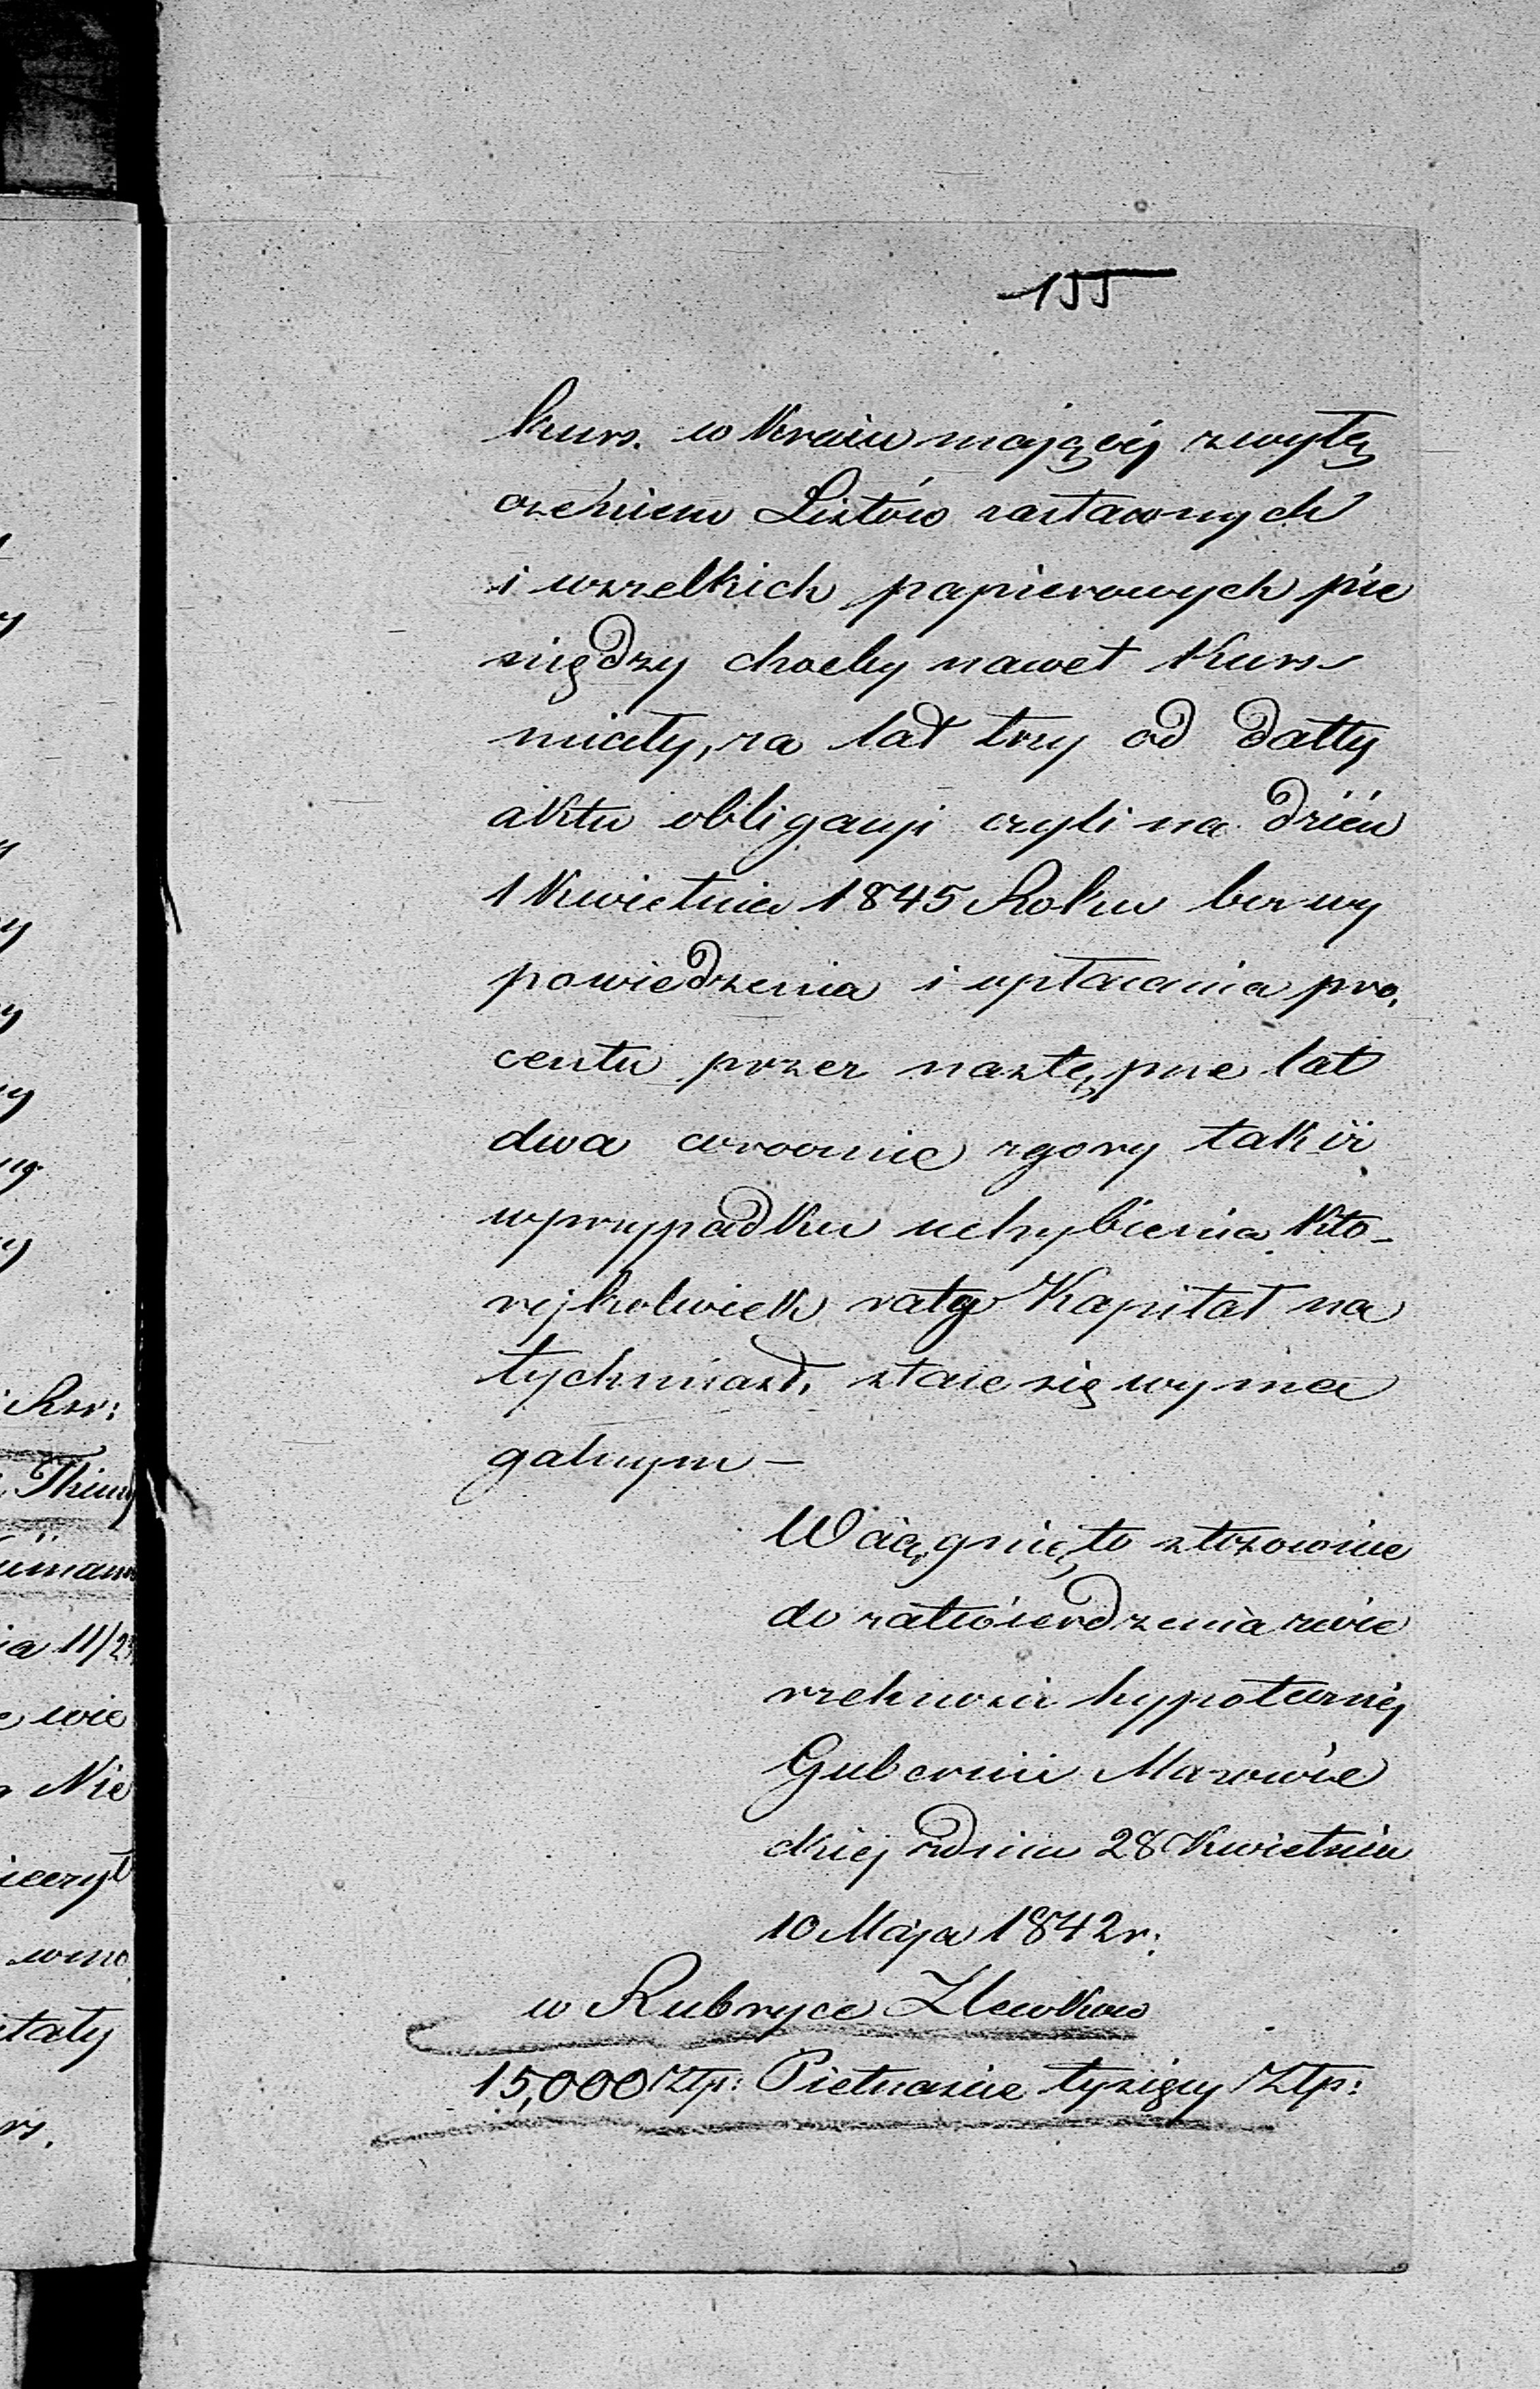 155
kurs. w Kraiu mającej zwyłą
czeniem Listów zastawnych
i wszelkich papierowych pie
niędzy choćby nawet Kurs
miały, za lat trzy od datty
aktu obligacyi czyli na dzień
1 Kwietnia 1845 Roku bez wy
powiedzenia i opłacania pro,
centu przez następne lat
dwa corocznie zgory tak iż
wprzypadku uchybienia kto-
rejkolwiek raty Kapitał na
tychmiast, staie się wyma
galnym -
Wciągnięto stosownie
do zatwierdzenia zwie
rzchności hypotecznéj
Gubernii Mazowie
ckiej zdnia 28 Kwietnia
10 Maja 1842 r:
w Rubryce
15,000 Złp: Pietnaście tysięcy Złp:
Rsr:
ia 11/23
wie
Nie